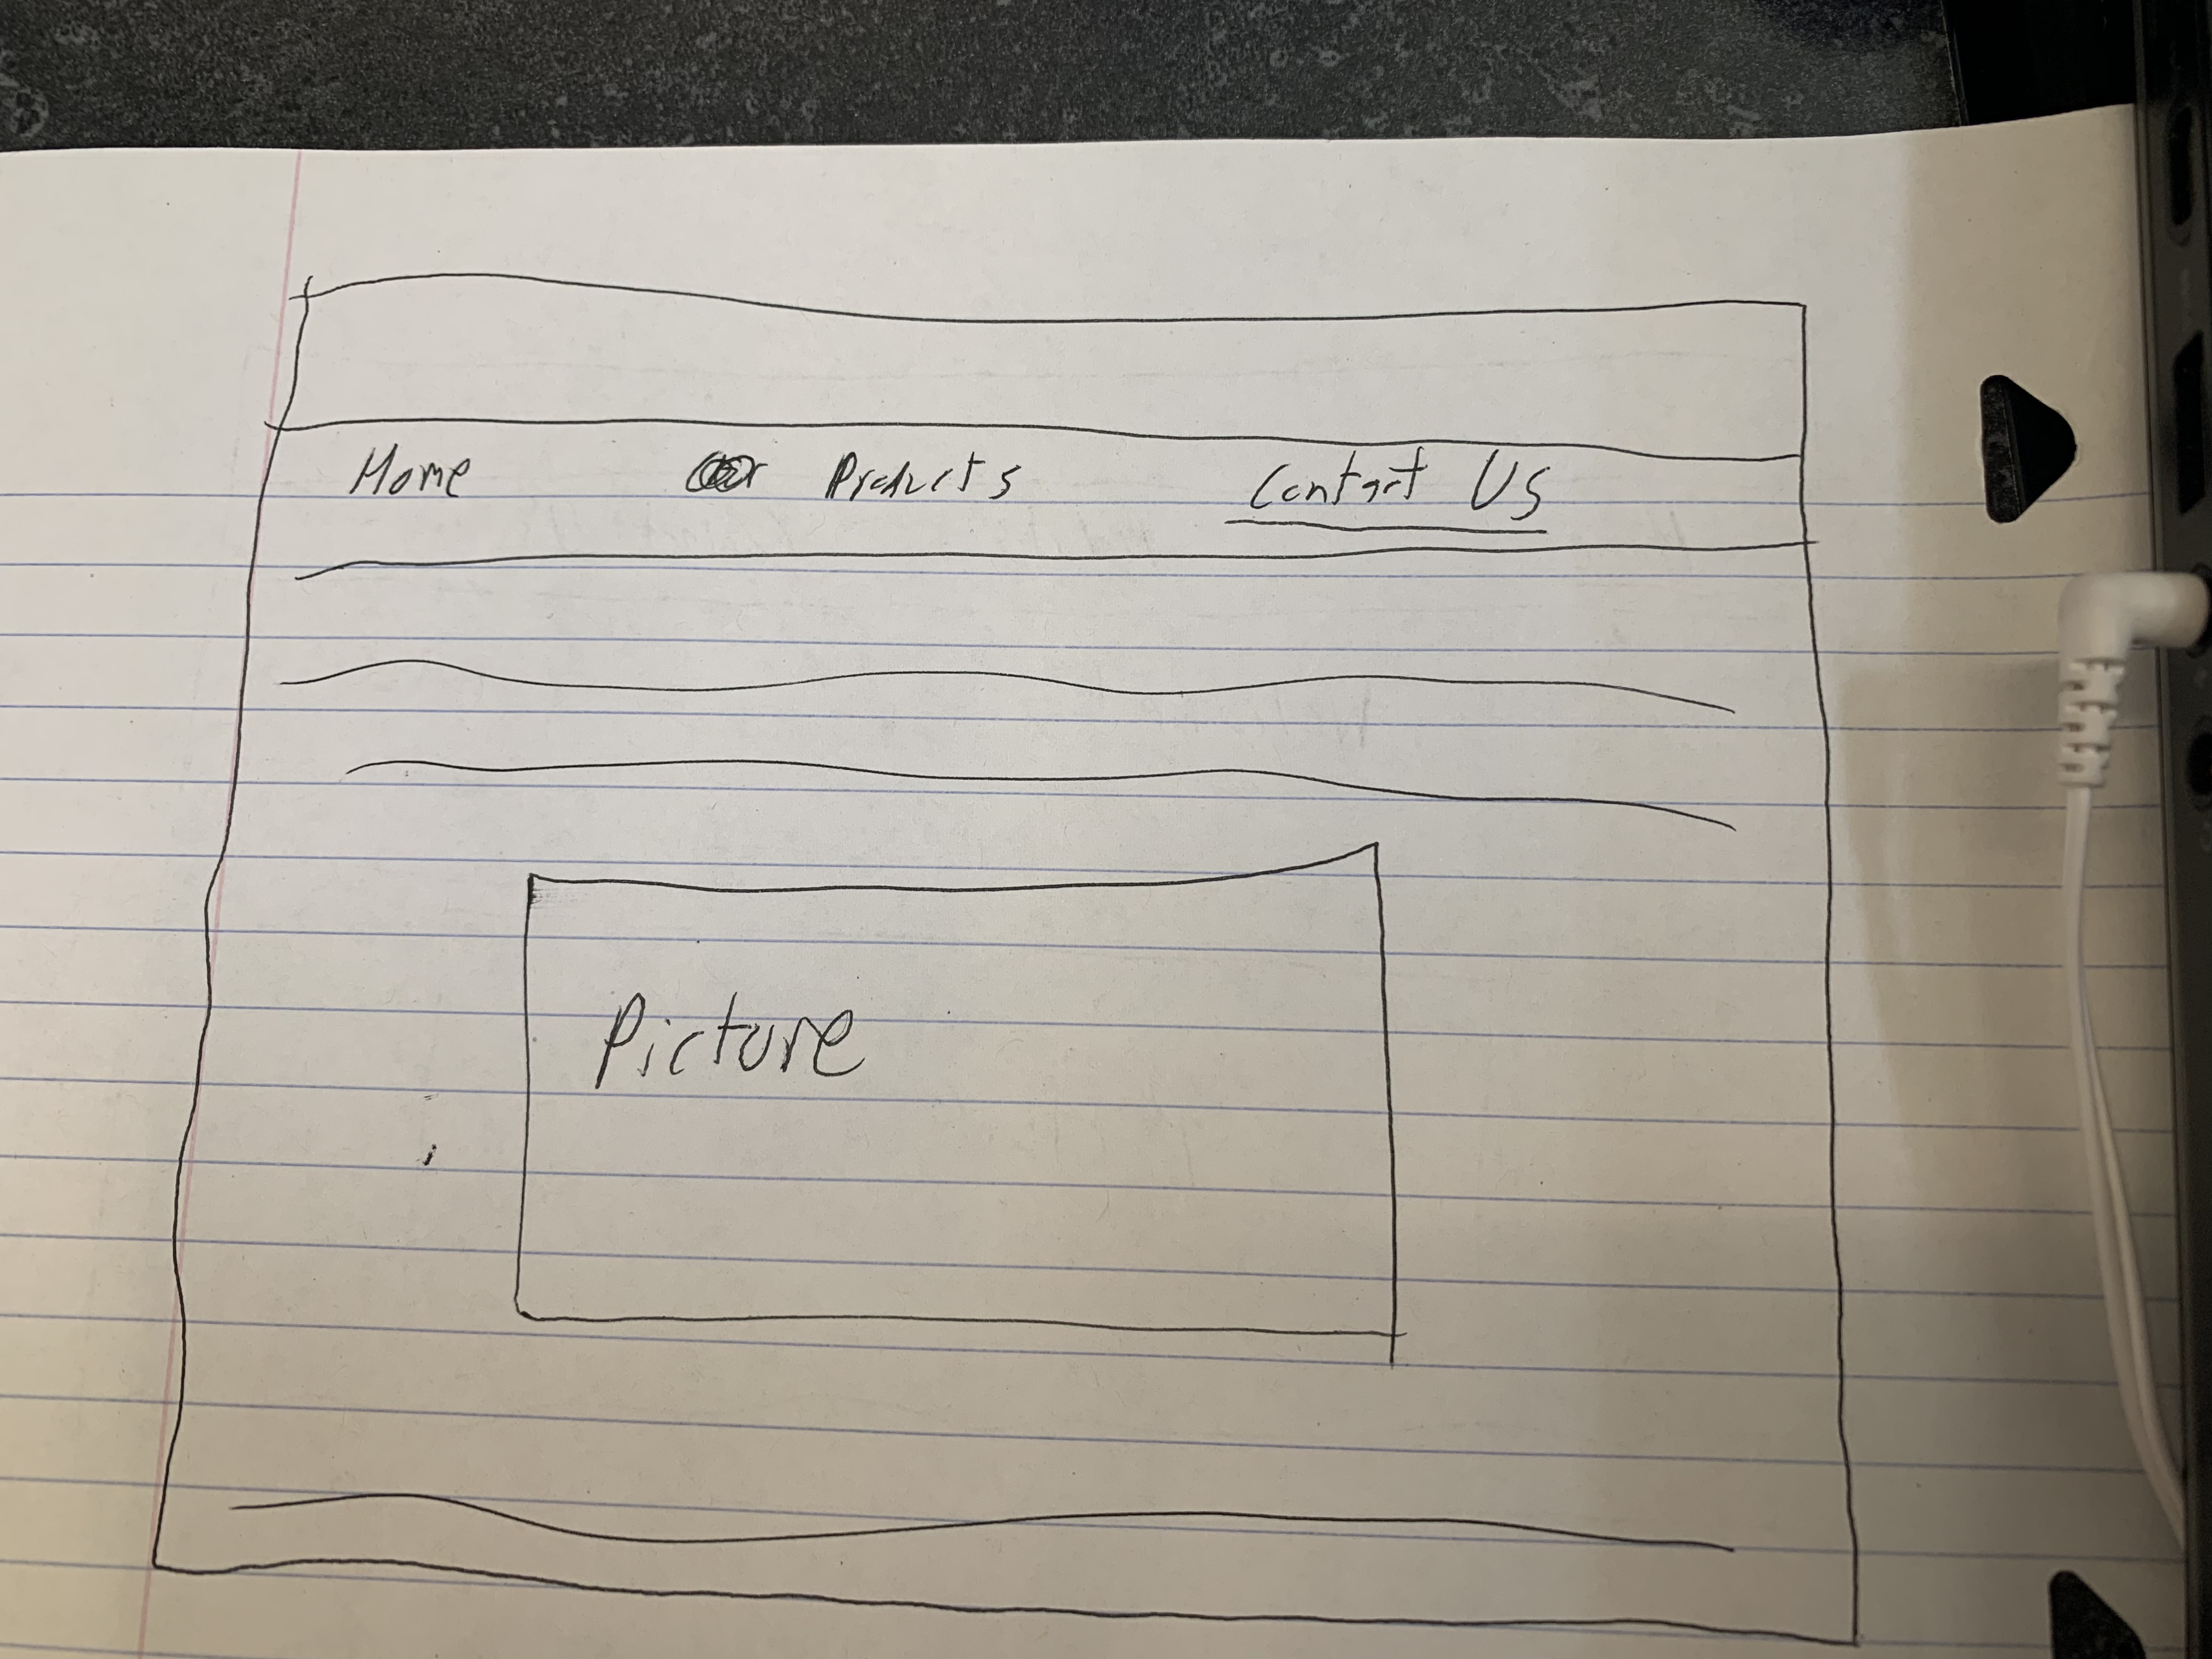 Home Our Products Contact Us
Picture